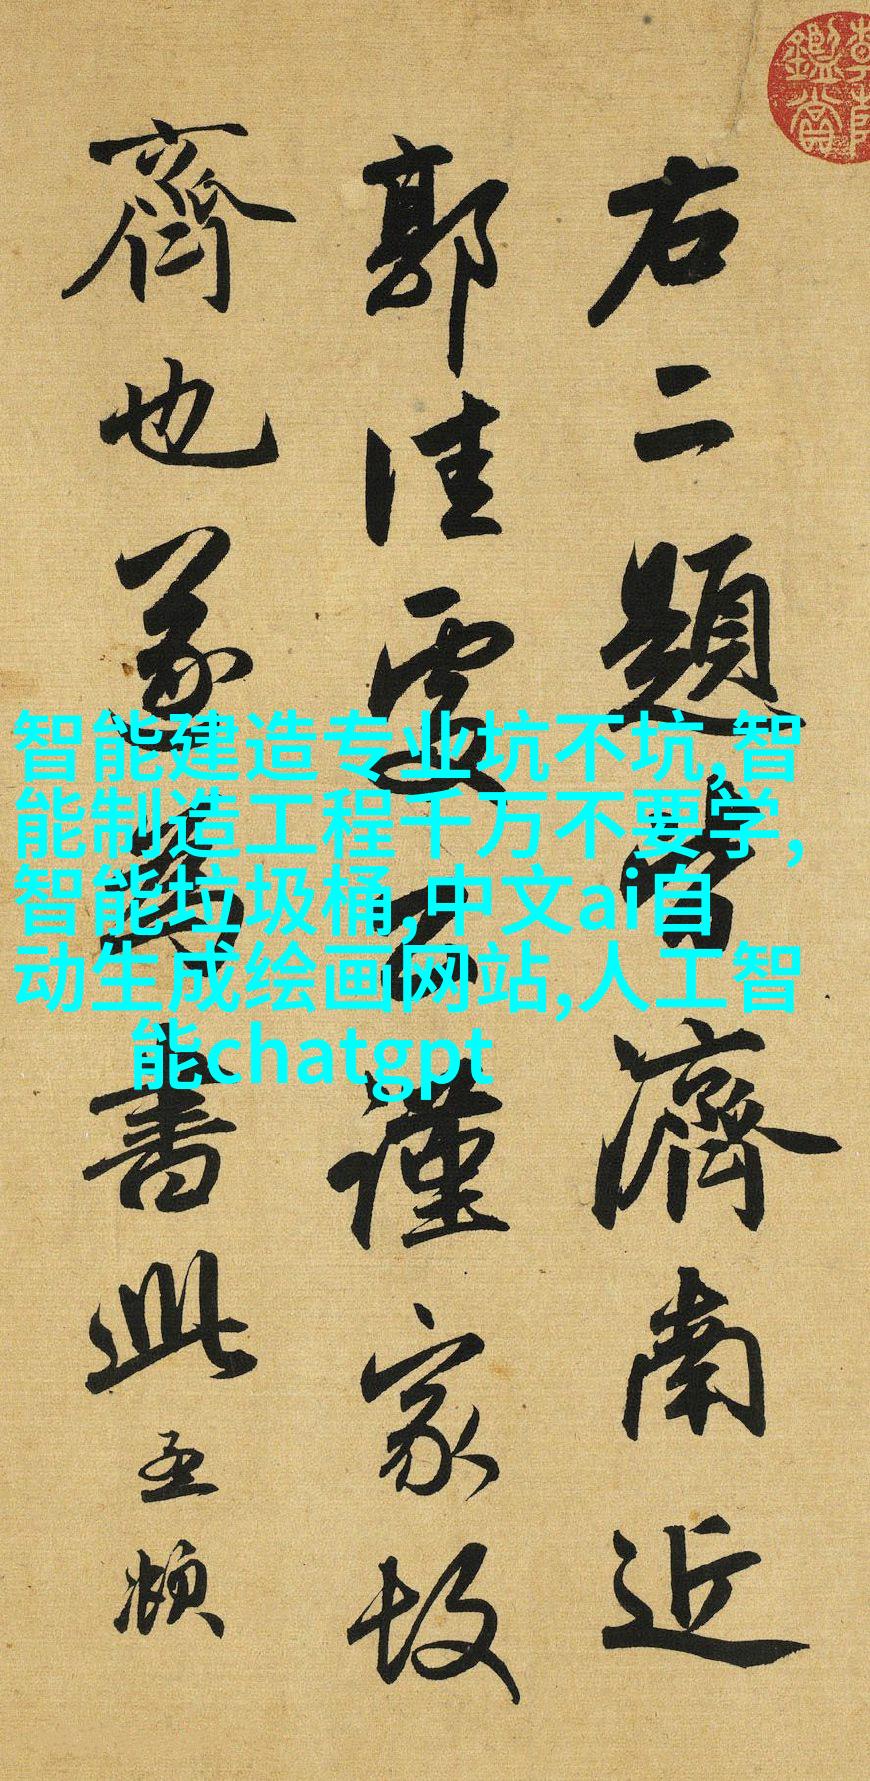 右二題皆濟南近
郭佳處公謹家故
齊也遂為書此孟頫
鑑賞
智能建造专业坑不坑,智
能制造工程千万不要学,
智能垃圾桶,中文ai自
动生成绘画网站,人工智
能chatgpt